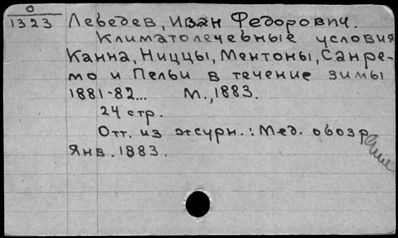 О
1323
Лебедев, Иван Федорович.
Климатолечебные условия
Канна, Ниццы, Ментоны, Санре-
мо и Пельи в течение зимы
1881-82... М., 1883.
24 стр.
Отт. из журн.: Мед. обозр.
Янв. 1883.